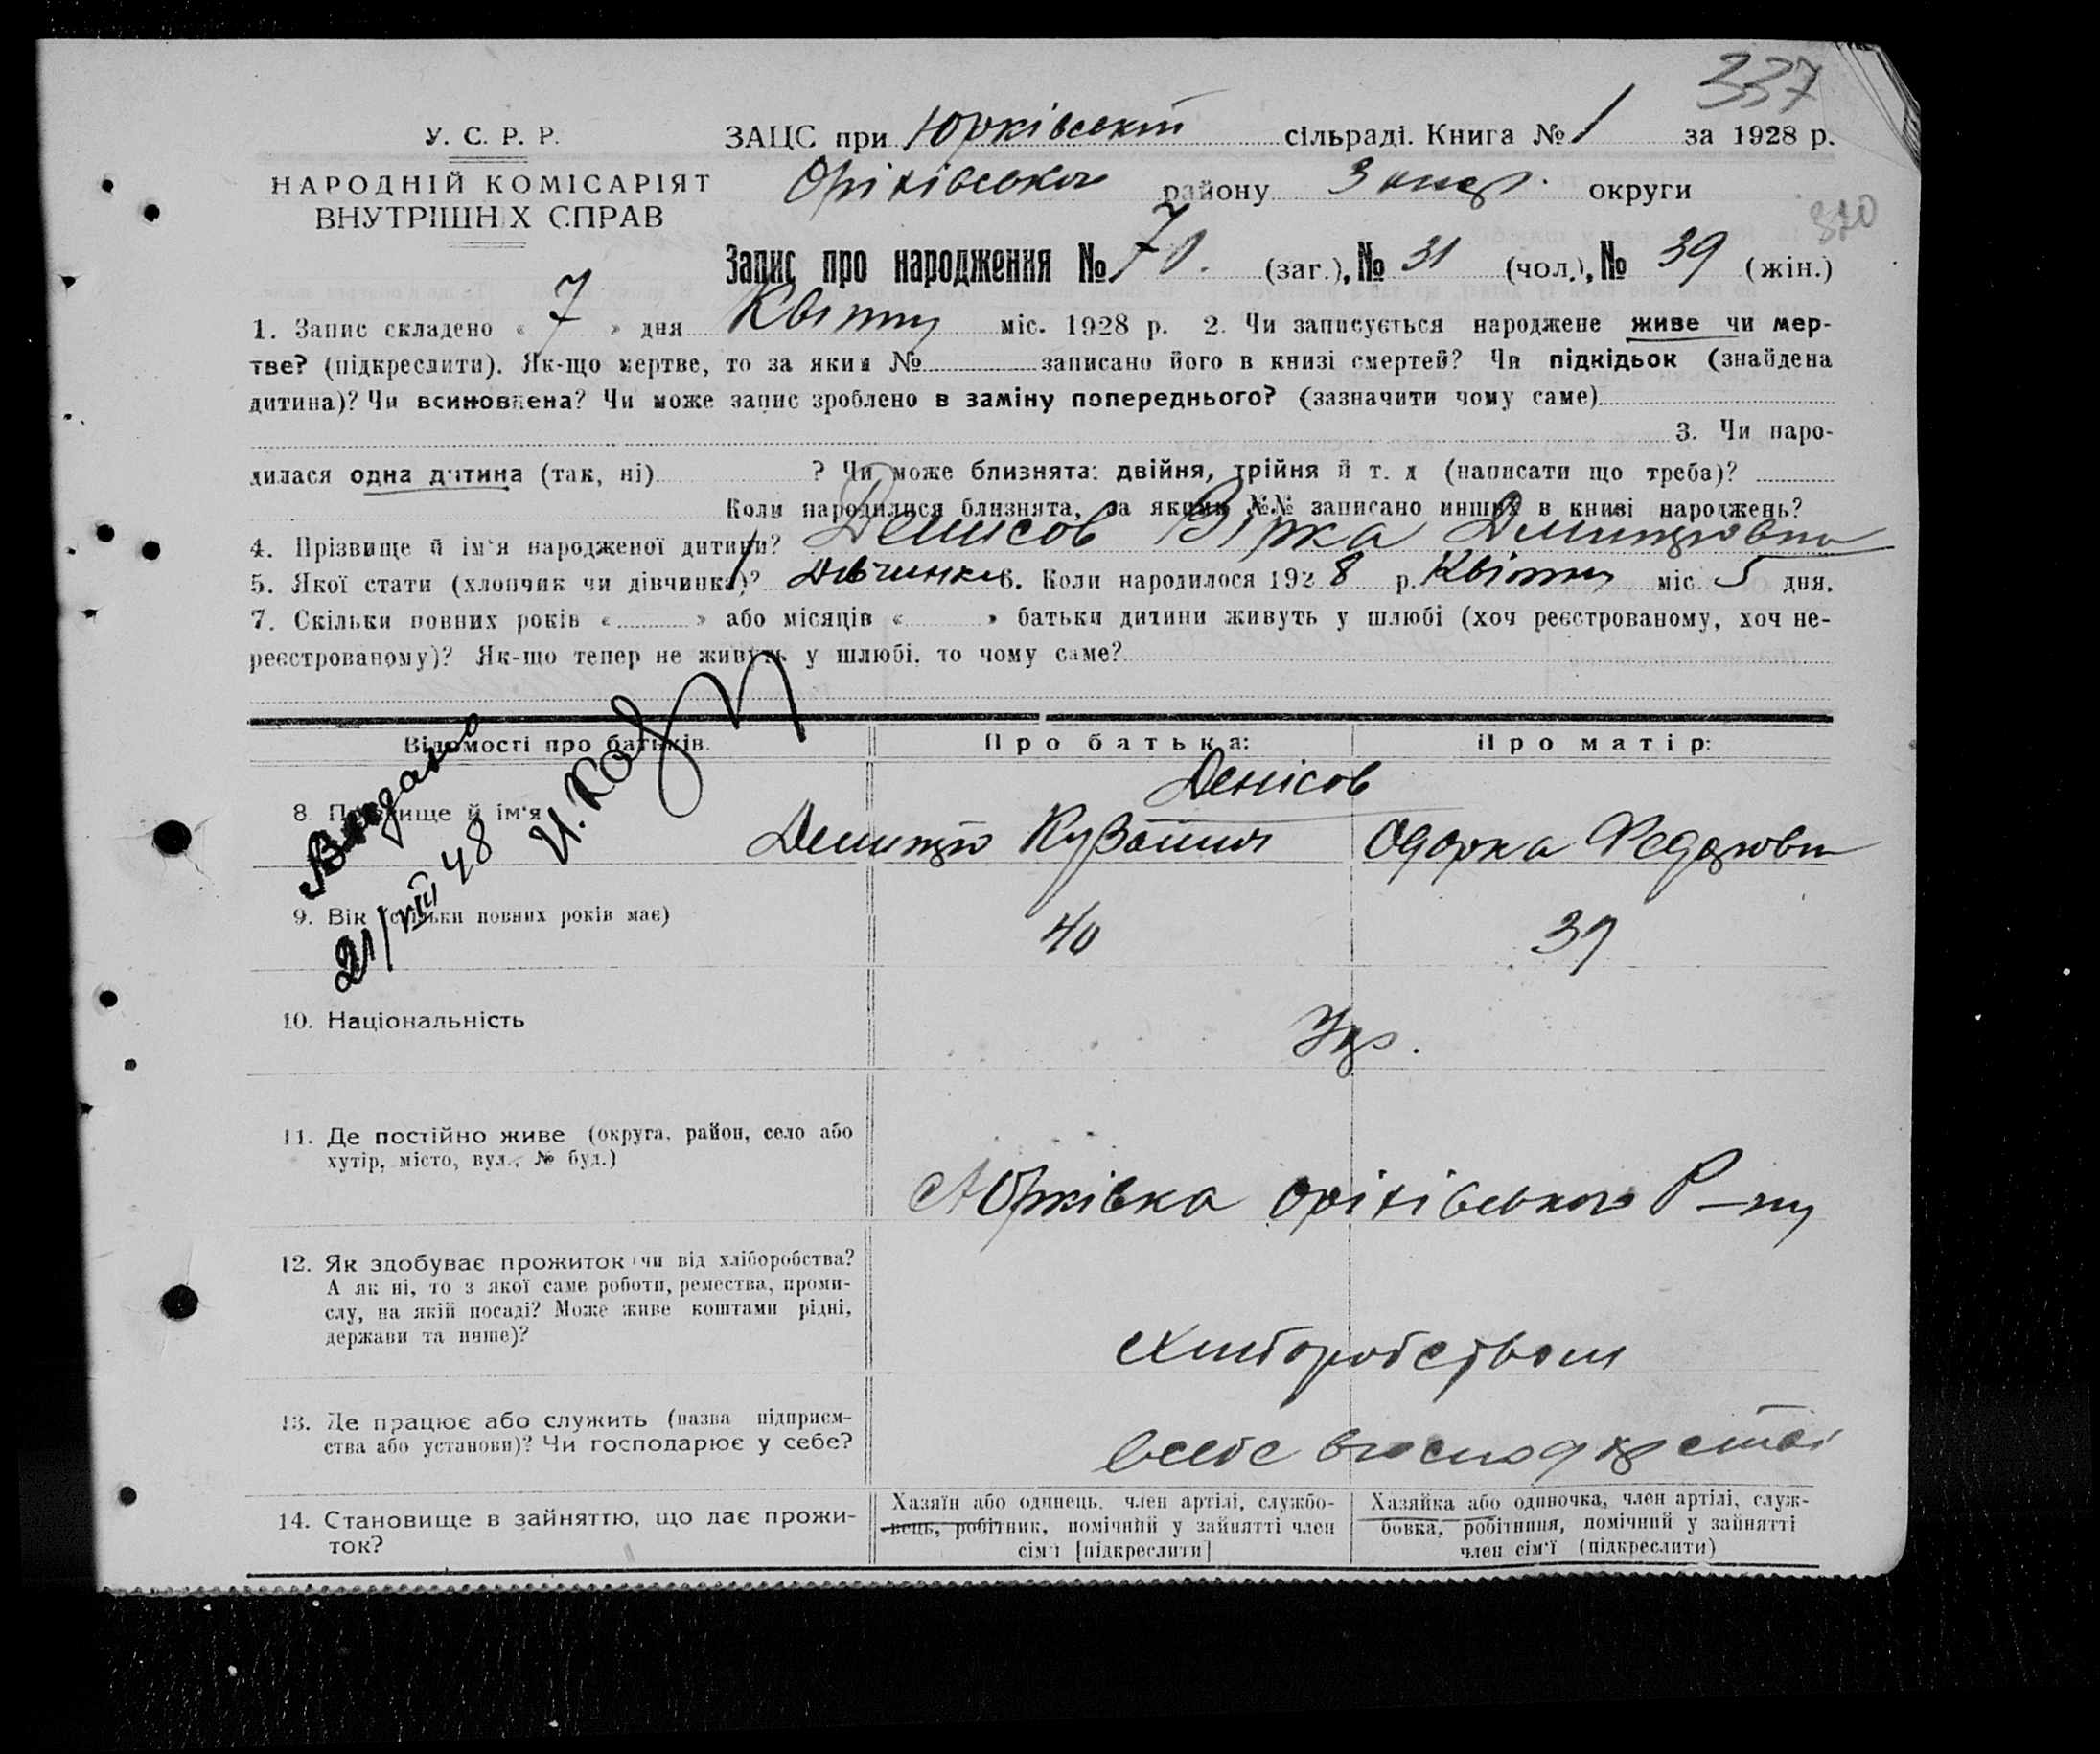 337
У. С. Р. Р.
НАРОДНІЙ КОМІСАРІЯТ
ВНУТРІШНІХ СПРАВ
ЗАЦС при Юрківській сільраді. Книга № 1 за 1928 р.
Оріхівського району Запор. округи
370
Запис про народження № 70. (заг.), № 31 (чол.), № 39 (жін.)
1. Запис складено « 7 » дня Квітня міс. 1928 р. 2. Чи записується народжене живе чи мер-
тве? (підкреслити). Як-що мертве, то за яким № записано його в книзі смертей? Чи підкідьок (знайдена
дитина)? Чи всиновлена? Чи може запис зроблено в заміну попереднього? (зазначити чому саме)
3. Чи наро-
дилася одна дитина (так, ні) ? Чи може близнята: двійня, трійня й т. д (написати що треба)?
Коли народилися близнята, за якими №№ записано инших в книзі народжень?
4. Прізвище й ім'я народженої дитини? Денисов Вірка Дмитровна
5. Якої стати (хлопчик чи дівчинка)? Дівчинка 6. Коли народилося 1928 р. Квітня міс. 5 дня.
7. Скільки повних років « » або місяців « » батьки дитини живуть у шлюбі (хоч реєстрованому, хоч не-
реєстрованому)? Як-що тепер не живуть у шлюбі, то чому саме?
Відомості про батьків. Про батька: Про матір:
Денісов
8. Прізвище й ім'я Дмитро Кузьмич Одарка Федоровн
21/VIII 48
9. Вік (скільки повних років має) 40 39
10. Національність Укр.
11. Де постійно живе (округа, район, село або
хутір, місто, вул., № буд.)
с Юрківка Оріхівського Р-ну
12. Як здобуває прожиток чи від хліборобства?
А як ні, то з якої саме роботи, ремества, проми-
слу, на якій посаді? Може живе коштами рідні,
держави та инше)?
Хліборобством
13. Де працює або служить (назва підприєм-
ства або установи)? Чи господарює у себе?
в себе в господарстві
14. Становище в зайняттю, що дає прожи-
ток?
Хазяїн або одинець, член артілі, службо-
вець, робітник, помічний у зайнятті член
сім'ї [підкреслити]
Хазяйка або одиночка, член артілі, служ-
бовка, робітниця, помічний у зайнятті
член сім'ї (підкреслити)